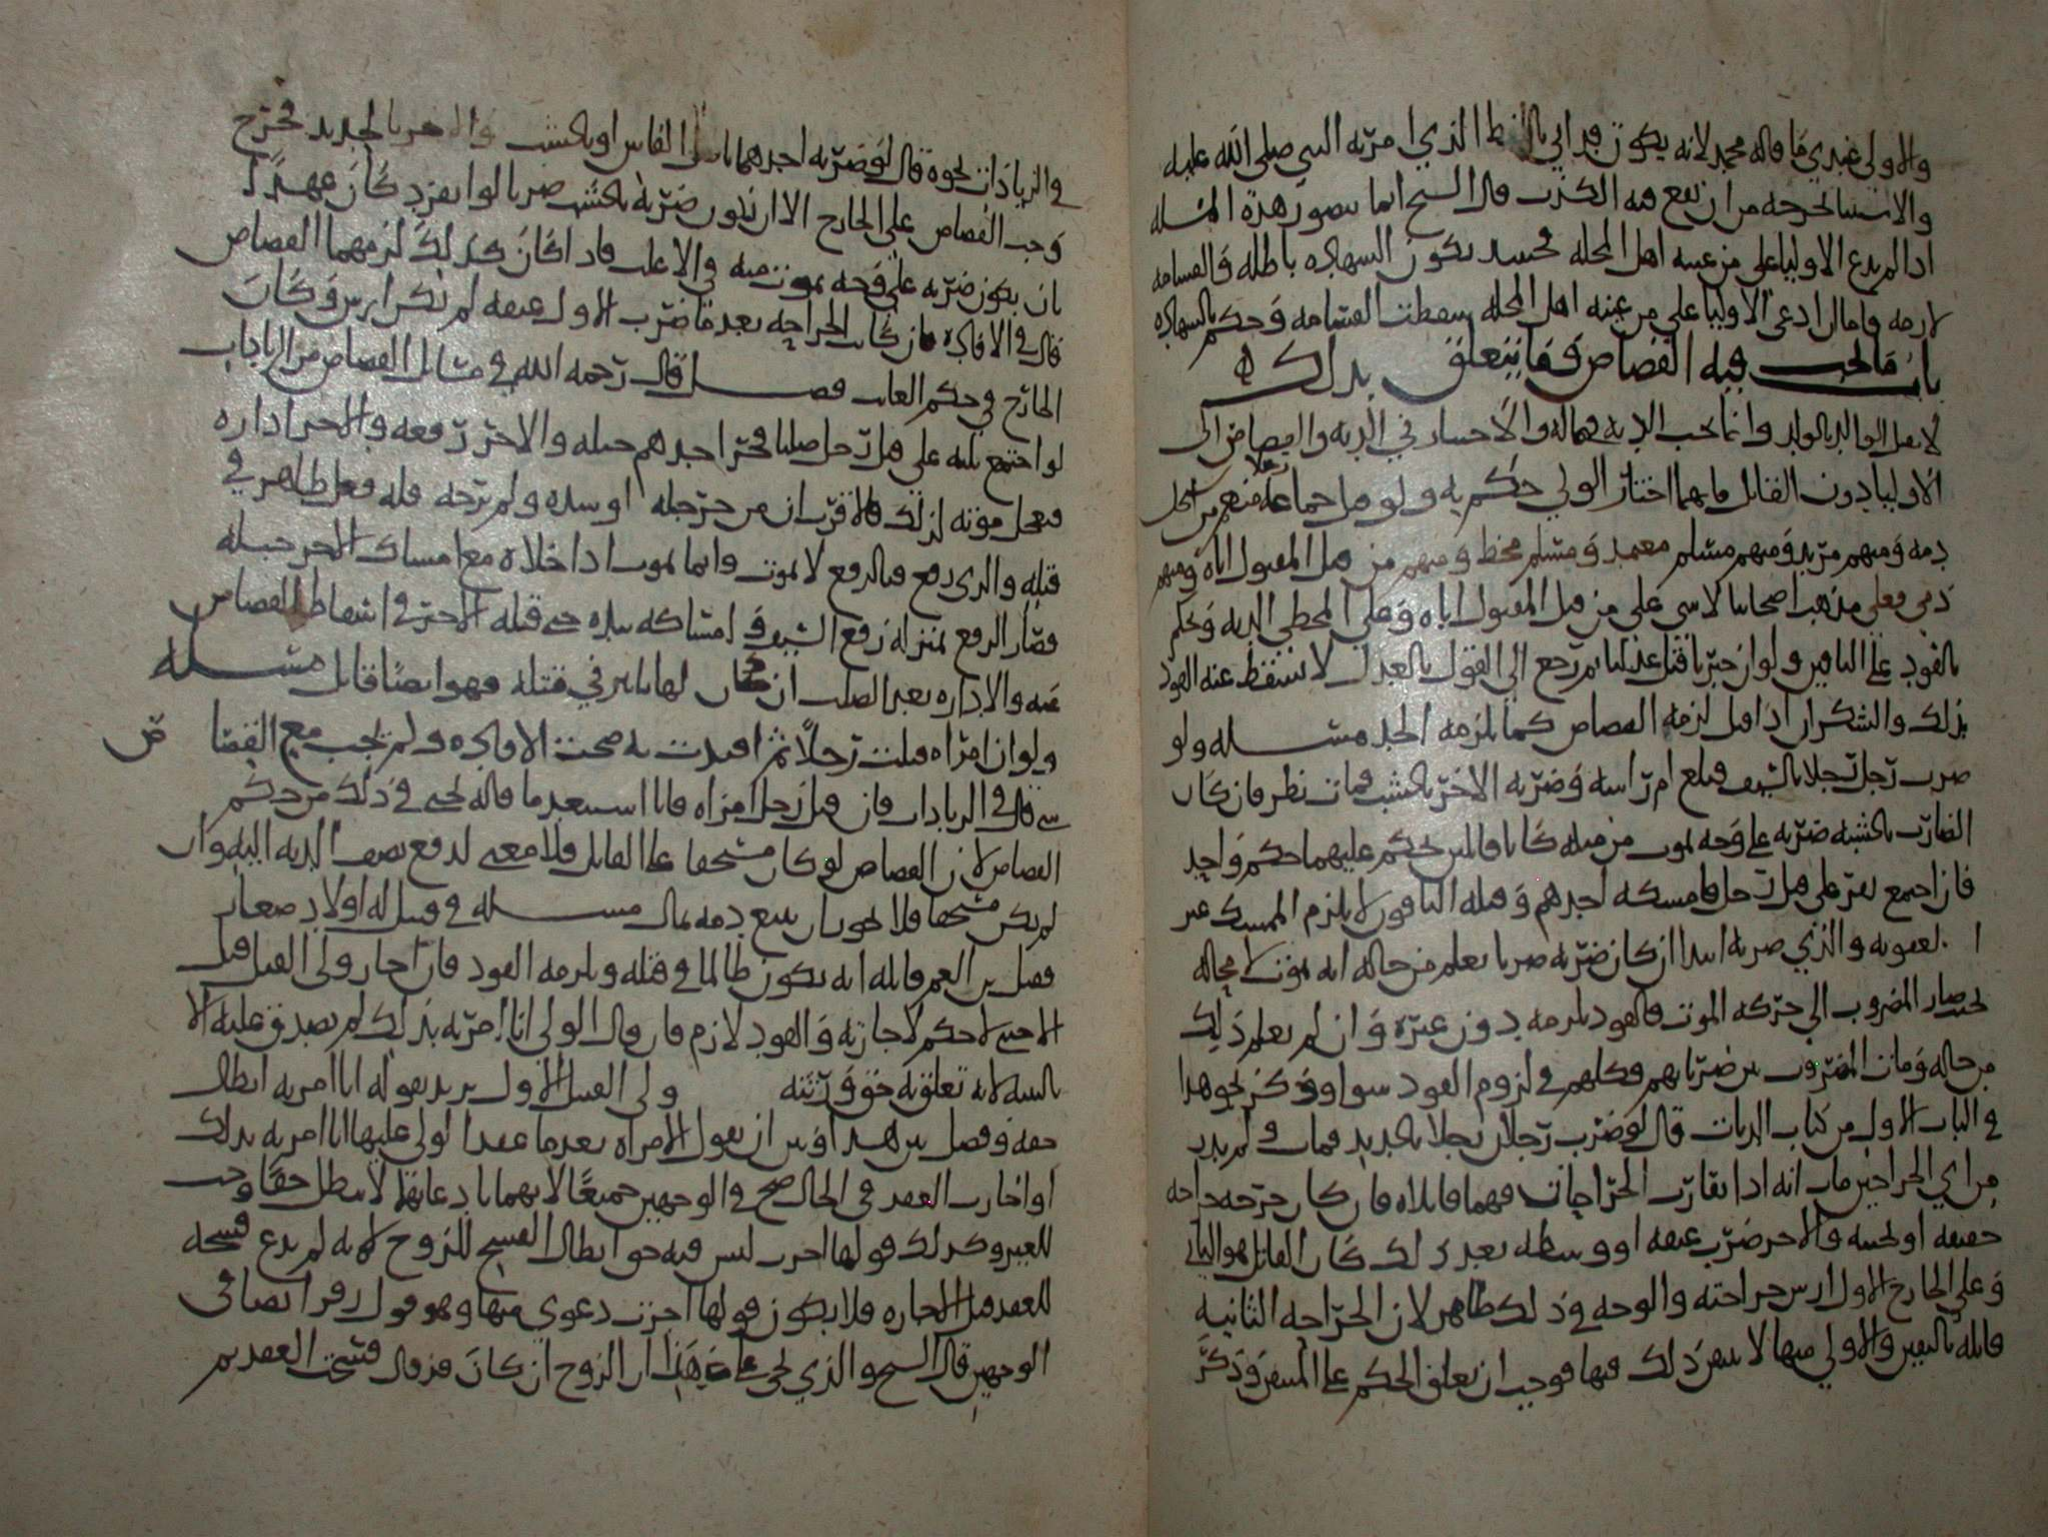 والاولى عندي ما قاله محمد لانه يكون قد اتى باللفظ الذي امر به النبي صلى الله عليه
والاستثنا يخرجه من ان يقع فيه الكذب قال الشيخ انما يتصور هذه المسله
اذا لم يدع الاوليا على من عينه اهل المحله فحينئذ يكون الشهاده باطله والقسامه
لازمه واما ان ادعى الاوليا على من عينه اهل المحله سقطت القسامه وحكم بالشهاده
باب ما يجب فيه القصاص وما يتعلق بذلك
لا يقتل الوالد بالولد وانما يجب الديه في ماله والاختيار في الديه والقصاص الى
الاوليا دون القاتل فايهما اختار الولي حكم به ولو قتل جماعة رجلا منهم من
ذمه ومنهم مرتد ومنهم مسلم معتمد ومسلم مخطي ومنهم من قتل المقتول اباه ومنهم
ذمي فعلى مذهب اصحابنا لا شي على من قتل المقتول اباه وعلى المخطي الديه ويحكم
بالقود على الباقين ولو ان حربيا قتل ثم رجع الى القول بالعدل لا يسقط عنه القود
بذلك والسكران اذا قتل لزمه القصاص كما يلزمه الحد مسله ولو
ضرب رجل رجلا بالسيف فبلغ ام راسه وضربه الاخر بالخشب فمات نظر فان كان
الضارب بالخشبه ضربه على وجه يموت من مثله كانا قاتلين يحكم عليهما حكم واحد
فان اجتمع نفر على قتل رجل فامسكه احدهم وقتله الباقون لا يلزم الممسك غير
العقوبه والذي ضربه ابتدا ان كان ضربه ضربا يعلم من حاله انه يموت لا محاله
فصار المضروب الى حركه الموت فالقود يلزمه دون غيره وان لم يعلم ذلك
من حاله ومات المضروب بين ضرباتهم فكلهم في لزوم القود سوا وذكر نحو هذا
في الباب الاول من كتاب الديات قال لو ضرب رجلان رجلا بالحديد فمات ولم يدر
من اي الجراحتين مات انه اذا تقارب الجراحات فهما قاتلاه فان كان جرحه جراحه
خفيفه او لحيته والاخر ضرب عنقه او وسطه بعد ذلك كان القاتل هو الثاني
وعلى الجارح الاول ارش جراحته والوجه في ذلك ظاهر لان الجراحه الثانيه
قاتله باليقين والاولى منها لا يتيقن ذلك فيها فوجب ان يعلق الحكم على المتيقن وذكر
في الزيادات نحوه قال لو ضربه احدهما الفاس او بالخشب والاخر بالحديد فجرح
وجب القصاص على الجارح الا ان يكون ضربه بالخشب ضربا لو انفرد كان عمدا
بان يكون ضربه على وجه يموت منه في الاغلب فاذا كان كذلك لزمهما القصاص
قال في الافاده فان كانت الجراحه بعد ما ضرب الاول عنقه لم يكن ارش وكان
الجارح في حكم العابث فصل قال رحمه الله في مسائل القصاص من الزيادات
لو اجتمع ثلثه على قتل رجل صلبا فجر احدهم حبله والاخر رفعه والاخر اداره
فعجل موته لذلك فالاقرب ان من جر حبله او شده ولم يرخه قتله فعل ظاهر في
قتله والذي رفع فبالرفع لا يموت وانما يموت اذا خلاه مع امساك الاخر حبله
فصار الرفع بمنزله رفع السيف وامساكه بيده حتى قتله الاخر في اسقاط القصاص
عنه والاداره بعد الصلب ان كان لها تاثير في قتله فهو ايضا قاتل مسله
ولو ان امراه قتلت رجلا ثم اقيدت به صحت الافاده ولم يجب مع القصاص
شي قال في الزيادات فان قتل رجل امراه فانا استبعد ما قاله يحيى في ذلك من حكم
القصاص لان القصاص لو كان مستحقا على القاتل فلا معنى لدفع نصف الديه اليه وان
لم يكن مستحقا فلا يجوز ان يبيع دمه بمال مسله في قتيل له اولاد صغار
فصل بن العم قاتله انه يكون ظالما في قتله ويلزمه القود فان اجاز ولي القتيل قتل
الاجنبي لا حكم لاجازته والقود لازم فان قال الولي انا امرته بذلك لم يصدق عليه الا
بالبينه لانه تعلق به حق ورثته ولي القتيل الاول يريد بقوله انا امرته ابطال
حقه وفصل بين هذا وبين ان يقول الامراه بعد ما عقد الولي عليها انا امرته بذلك
او اختارت العقد في الحال صح في الوجهين جميعا لانهما بادعائها لا يبطل حقا وجب
للغير وكذلك قولها اجزت ليس فيه حق ابطال الفسخ للزوج لانه لم يدع فسخه
للعقد قبل الاجازه فلا يكون قولها اجزت دعوى منها وهو قول زفر ايضا في
الوجهين قال الشيخ والذي يجي على هذا ان الزوج ان كان قد قال فسخت العقد ثم